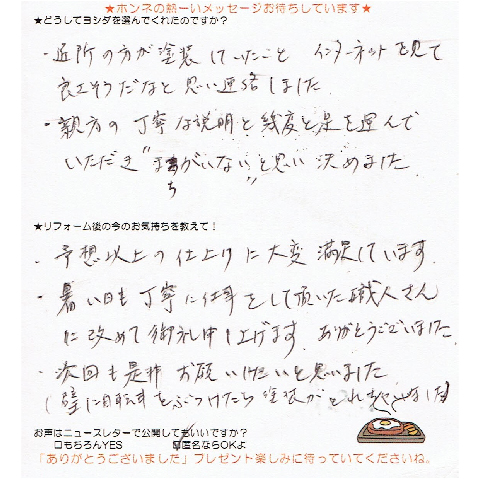 ★ホンネの熱ーいメッセージお待ちしています★
★どうしてヨシダを選んでくれたのですか？
・近所の方が塗装していたこと インターネットを見て
良さそうだなと思い連絡しました.
・親方の丁寧な説明と幾度と足を運んで
いただき"まちがいない"と思い決めました.
★リフォーム後の今のお気持ちを教えて！
・予想以上の仕上りに大変満足しています.
・暑い日も丁寧に仕事をして頂いた職人さん
に改めて御礼申し上げます. ありがとうございました.
・次回も是非お願いしたいと思いました.
(壁に自転車をぶつけたら塗装がとれちゃいました)
お声はニュースレターで公開してもいいですか？
口もちろんYES 匿名ならOKよ
「ありがとうございました」プレゼント楽しみに待っていてくださいね。